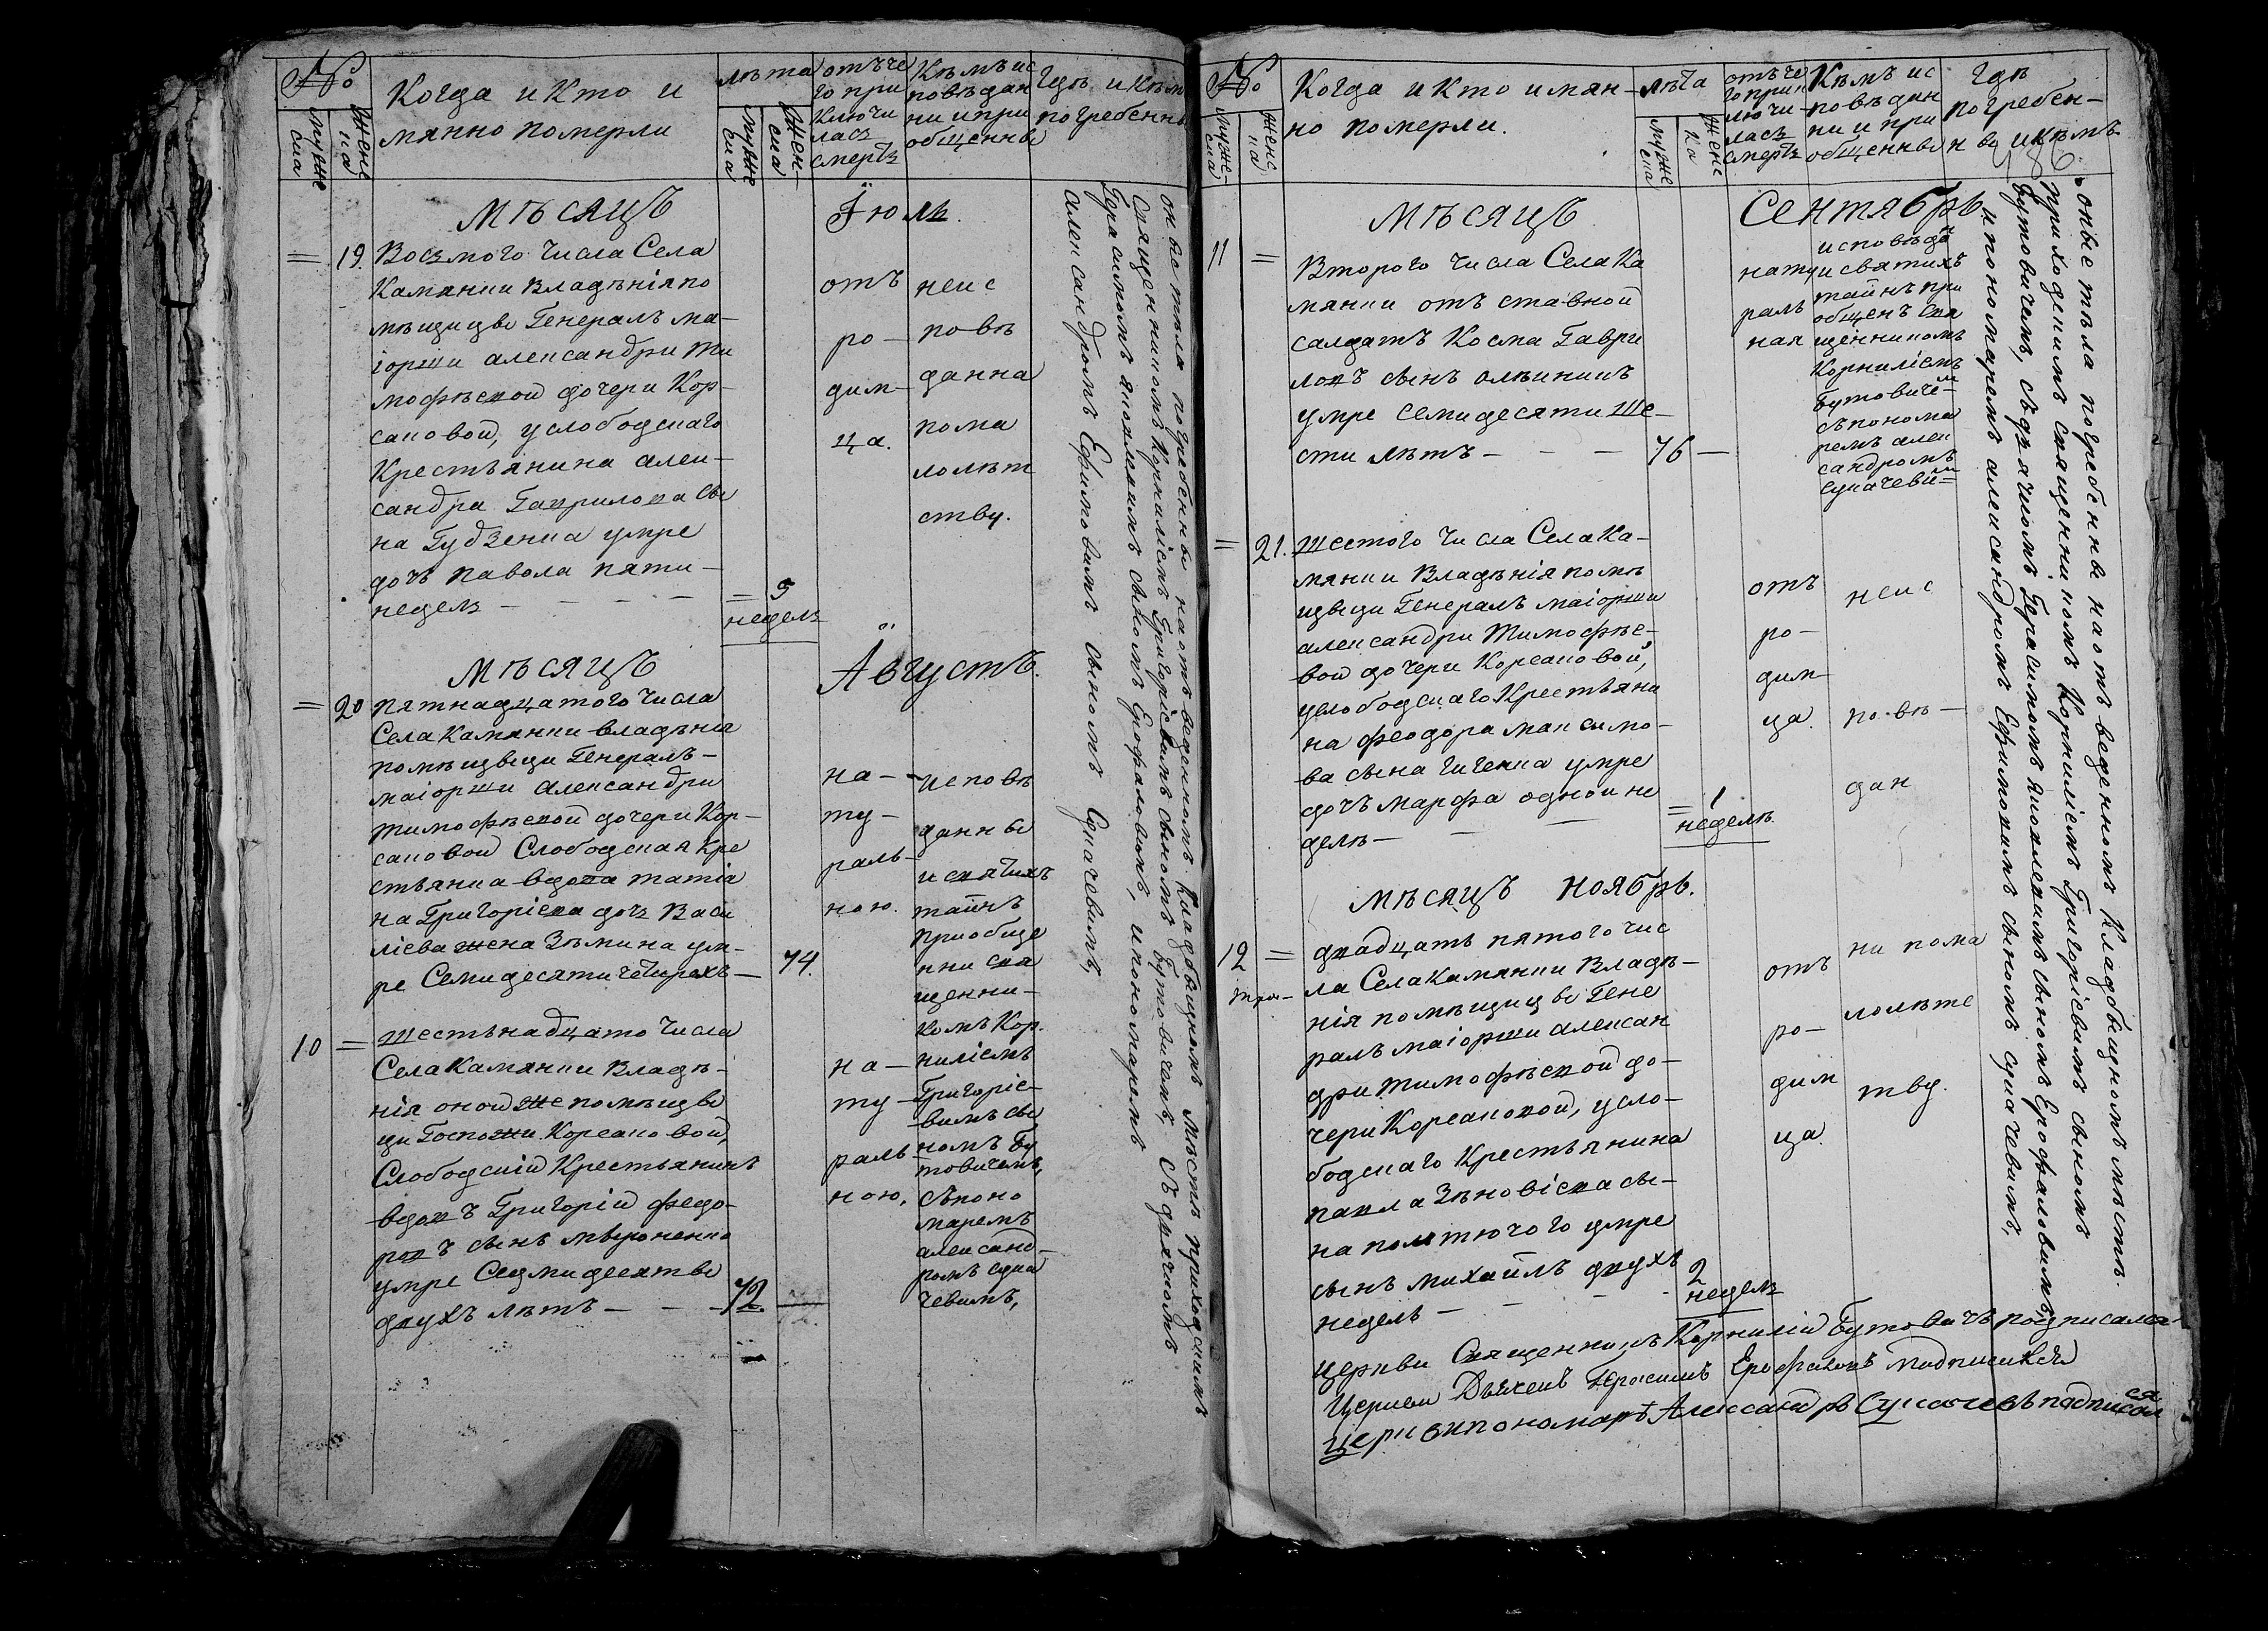 №
мужеска
женска
Когда и Кто и
мянно померли
лѣта
мужеска
женска
отъ че
го при
ключи
лась
смерть
Кѣмъ ис
повѣдан
ни и при
общенны
Гдѣ и Кѣм
погребенны
Мѣсяцъ Їюль.
= 19. Восмого числа Села
Камянки Владѣнія по
мѣщицы Генералъ ма-
іорши александри ти
мофѣевой дочери Кор-
саковой, услободскаго
Крестьянина алек-
сандра Гаврилова сы
на Гудзенка умре
дочь павола пяти-
недель - - - -
= 5
недель
отъ
ро-
дим-
ца.
неис
повѣ
данна
пома
лолѣт
ству.
Мѣсяцъ Августъ.
= 20 пятнадцатого числа
Села Камянки владѣнія
помѣщици Генералъ-
маіорши александри
тимофѣевой дочери Кор-
саковой Слободская кре
стьянка вдова татіа
на Григоріева дочь Васи
лієва жена Зѣмина ум-
ре Семидесяти четирохъ-
74.
на-
ту-
раль-
ною.
исповѣ
данны
и святихъ
тайнъ
приобще
нни свя
щенни-
комъ Кор.
ниліемъ
Григоріе-
вимъ сы
номъ Бу
товичемъ,
съ поно
маремъ
александ-
ромъ сука
чевимъ,
10 = шестьнадцато числа
Села Камянки Владѣ-
нія оной же помѣщы
ци Госпожи Корсаковой,
Слободскій Крестьянинъ
вдовъ Григорій федо-
ровъ сынъ мироненко
умре Седмидесяты
двухъ лѣтъ - - -
72.
на-
ту-
раль-
ною.
оны тѣла погребенны наотъведенномъ Кладбищномъ мѣстѣ приходскимъ
священникомъ Корниліемъ Григоріевимъ сыномъ Бутовичемъ, съ дячкомъ
Герасимомъ яковлевимъ сыномъ Ерофаловимъ, и пономаремъ
александромъ Ефимовимъ сыномъ Сукачевимъ,
№
мужеска
женска
Когда и Кто имян-
но померли.
лѣта
мужеска
женска
отъ че
го прик
лючи-
лась
смерть
Кѣмъ ис
повѣдан
ни и при
общенны
Гдѣ
погребен-
ны и кѣмъ
Мѣсяцъ Сентябрь
11 = Второго числа Села Ка
мянки отъставной
салдатъ Косма Гаври
ловъ сынъ олѣйникъ
умре семидесяти ше-
сти лѣтъ - - -
76 -
нату
раль
ная
исповѣда
и святихъ
тайнъ при
общенъ свя
щенникомъ
Корниліемъ
Бутовиче-
съ понома
ремъ алек
сандромъ
сукачеви-
= 21. шестого числа Села Ка-
мянки Владѣнія помѣ
щыци Генералъ маіорши
александри Тимофѣе-
вой дочери Корсаковой,
услободскаго Крестьяни
на феодора максимо-
ва сына гиченка умре
дочъ марфа одной не
дели- - -
= 1
неделя.
отъ
ро-
дим-
ца.
неис
повѣ-
дан
ни пома
лолѣтс
тву.
Мѣсяцъ Ноябрь.
12 = двадцать пятого чис
ла Села Камянки Владѣ-
нія помѣщицы Гене
ралъ маіорши алексан
дри тимофѣевой до-
чери Корсаковой, усло-
бодскаго Крестьянина
павла Зѣновіева сы-
на полтючого умре
сынъ михайлъ двухъ
недель - - - -
2
недель
отъ
ро-
дим
ца.
оные тѣла погребенны наотъведенномъ Кладбищномъ мѣстѣ.
приходскимъ священникомъ Корниліемъ Григоріевимъ сыномъ
Бутовичемъ, съ дячкомъ Герасимомъ яковлевимъ сыномъ Ерофаловимъ,
и пономаремъ александромъ Ефимовимъ сыномъ сукачевимъ,
церкви Священникъ Корнилій Бутовичъ подписался
Церкви Дьячекъ Герасимъ Ерофаловъ подписался
церкви пономарь Александръ Сукачевъ подписался